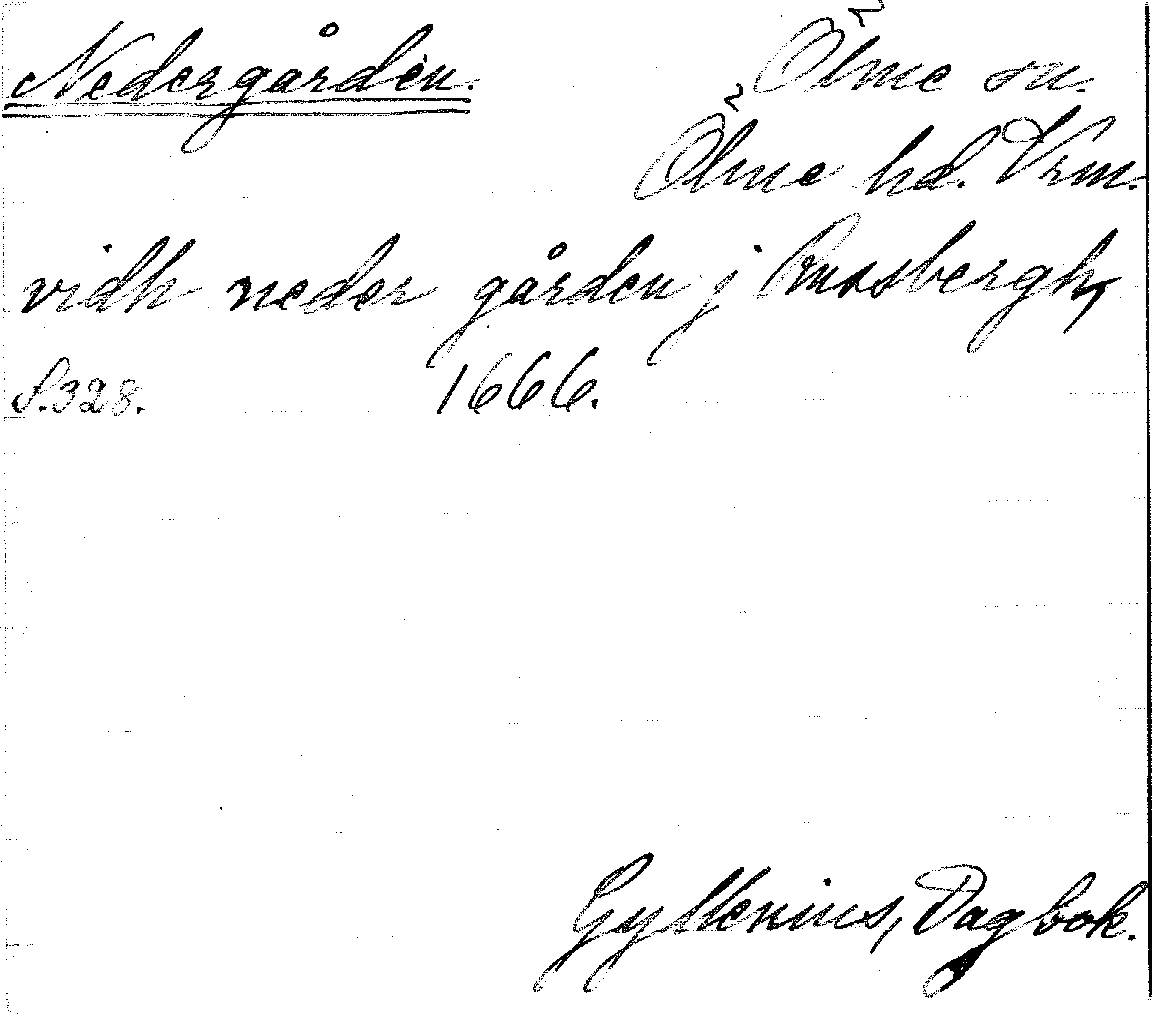 Nedergården.
Ölme sn.
Ölme hd. Vrm.
vidh neder gården j
S. 328. 1666.
Gyllenius, Dagbok.